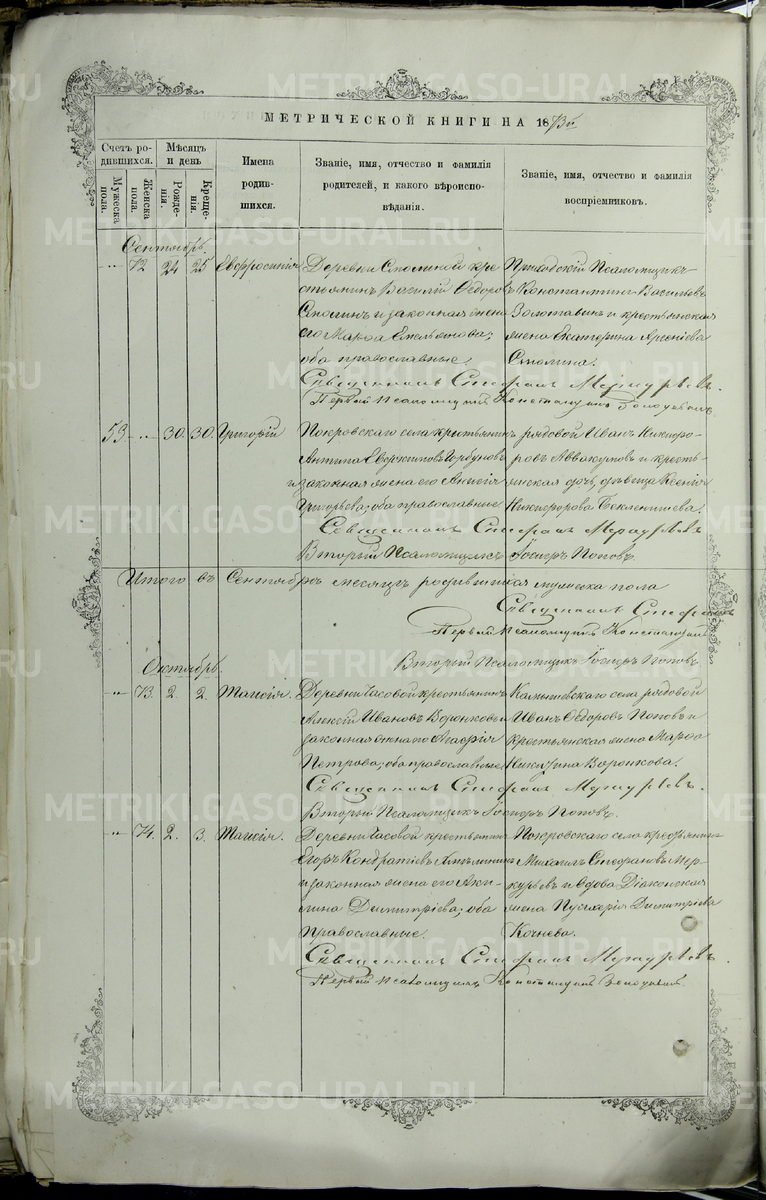 МЕТРИЧЕСКОЙ КНИГИ НА 1873й
Счетъ родившихся.
Мужеска пола.
Женска пола.
Мѣсяцъ и день
Рожденія.
Крещенія.
Имена родившихся.
Званіе, имя, отчество и фамилія родителей, и какого вѣроисповѣданія.
Званіе, имя, отчество и фамилія воспріемниковъ.
Сентябрь.
72 24 25 Евфросинія
Деревни Смолиной кре
стьянинъ Василій Ѳедоровъ
Смолинъ и законная жена
его Марѳа Емельянова;
оба православные.
Приходскій Псаломщикъ
Константинъ Васильевъ
и крестьянская
жена Екатерина
Смолина.
Священникъ Стефанъ Меркурьевъ.
Первый Псаломщикъ Константинъ
53 30. 30. Григорій
Покровскаго села крестьянинъ
Антипа Горбуновъ
и законная жена его
Григорьева; оба православные
рядовой Иванъ Никифо-
ровъ Аввакумовъ и кресть-
янская дочь, дѣвица Ксенія
Никифорова Бекленищева.
Священникъ Стефанъ Меркурьевъ
Вторый Псаломщикъ Поповъ.
Итого въ Сентябрѣ месяцѣ родившихся мужеска пола
Священникъ Стефанъ
Первый Псаломщикъ Константинъ
Вторый Псаломщикъ Поповъ.
Октябрь.
73. 2. 2. Таисія.
Деревни Часовой крестьянинъ
Алексій Ивановъ Воронковъ и
законная жена его Агафія
Петрова; оба православные
Камышевскаго села рядовой
Иванъ Ѳедоровъ Поповъ и
крестьянская жена Марѳа
Никитина Воронкова.
Священникъ Стефанъ Меркурьевъ.
Вторый Псаломщикъ Поповъ.
74. 2. 3. Таисія.
Деревни Часовой крестьянинъ
Егоръ Кондратіевъ
и законная жена его Аки-
лина Димитріева; оба
православные.
Покровскаго села крестьянинъ
Михаилъ Стефановъ Мер-
курьевъ и вдова Діаконская
жена Димитріева
Кочнева.
Священникъ Стефанъ Меркурьевъ.
Первый Псаломщикъ Константинъ
METRIKI.GASO-URAL.RU